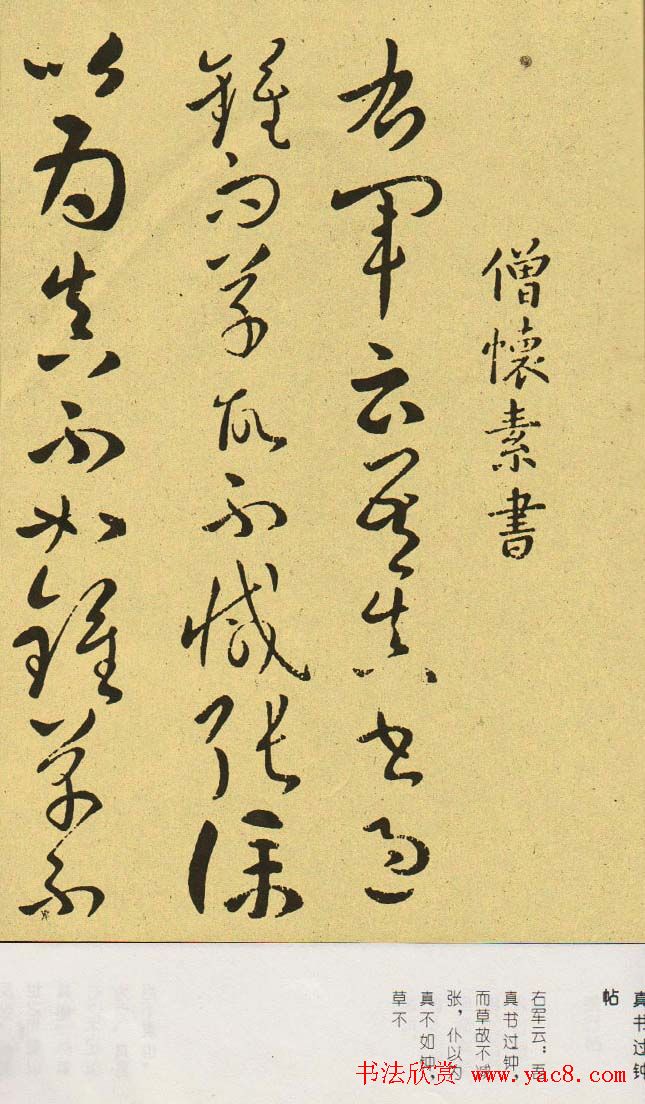 僧懷素書
右軍云吾真書過
鍾而草故不減張僕
以為真不如鍾草不
真书过钟
帖
右军云：吾
真书过钟，
而草故不减
张，仆以为
真不如钟，
草不
书法欣赏 www.yac8.com